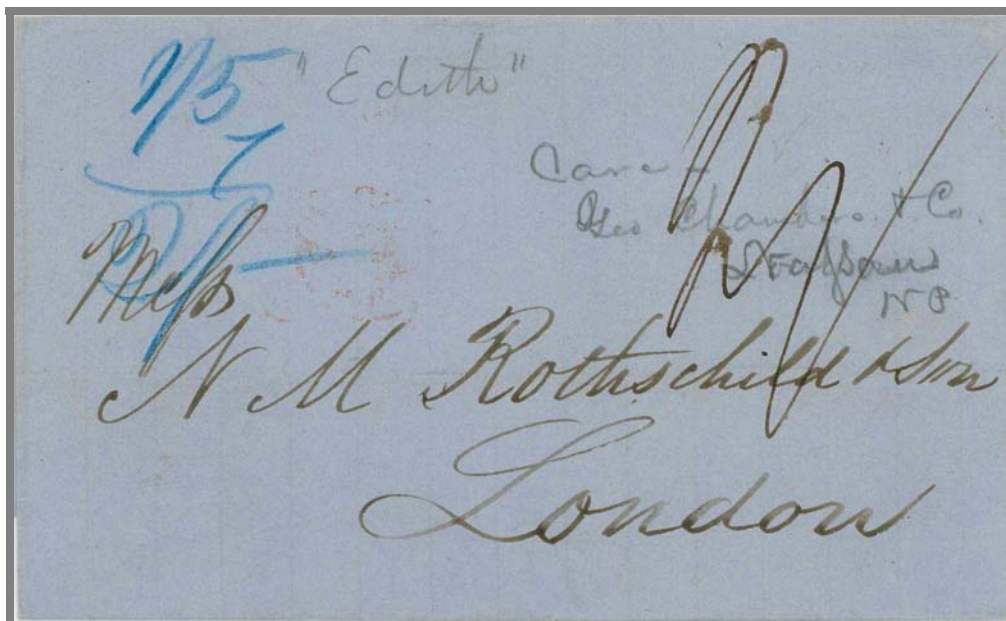 1/5 "Edith"
7
Care
Geo Chambers & Co.
N P
Mess
N M Rothschild & Son
London